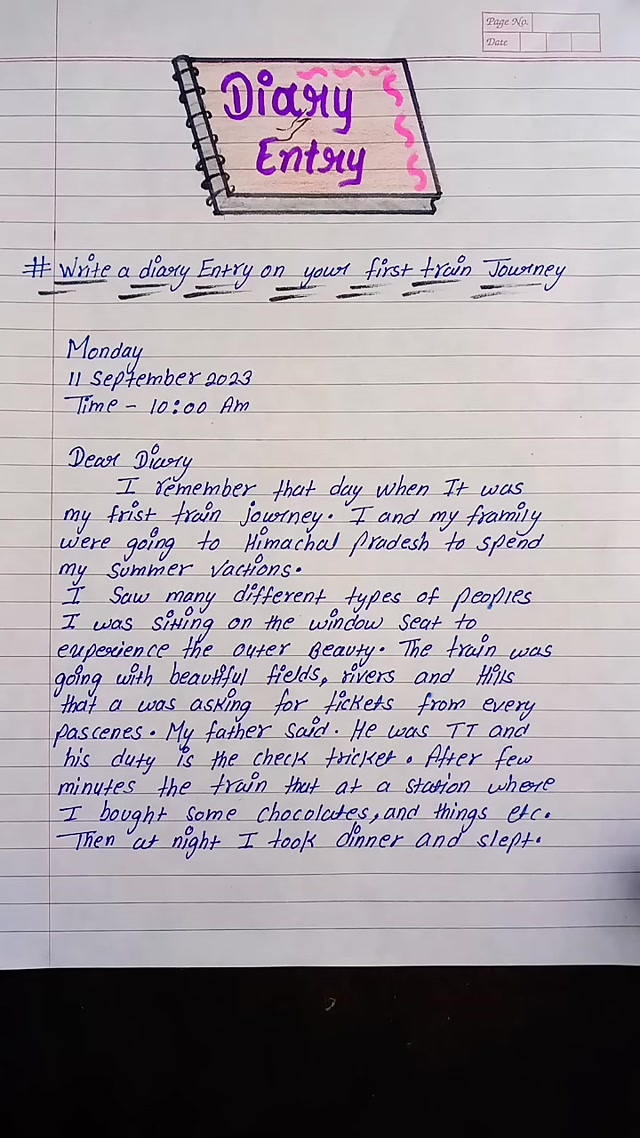 Page No.
Date
Diary
Entry
# Write a diary Entry on your first train Journey
Monday
11 September 2023
Time - 10:00 Am
Dear Diary
I remember that day when It was
my frist train journey. I and my framily
were going to Himachal Pradesh to spend
my summer vactions.
I Saw many different types of peoples
I was sitting on the window seat to
experience the outer Beauty. The train was
going with beautiful fields, rivers and Hills
that a was asking for tickets from every
pascenes. My father said. He was TT and
his duty is the check tricket. After few
minutes the train that at a station where
I bought some chocolates, and things etc.
Then at night I took dinner and slept.